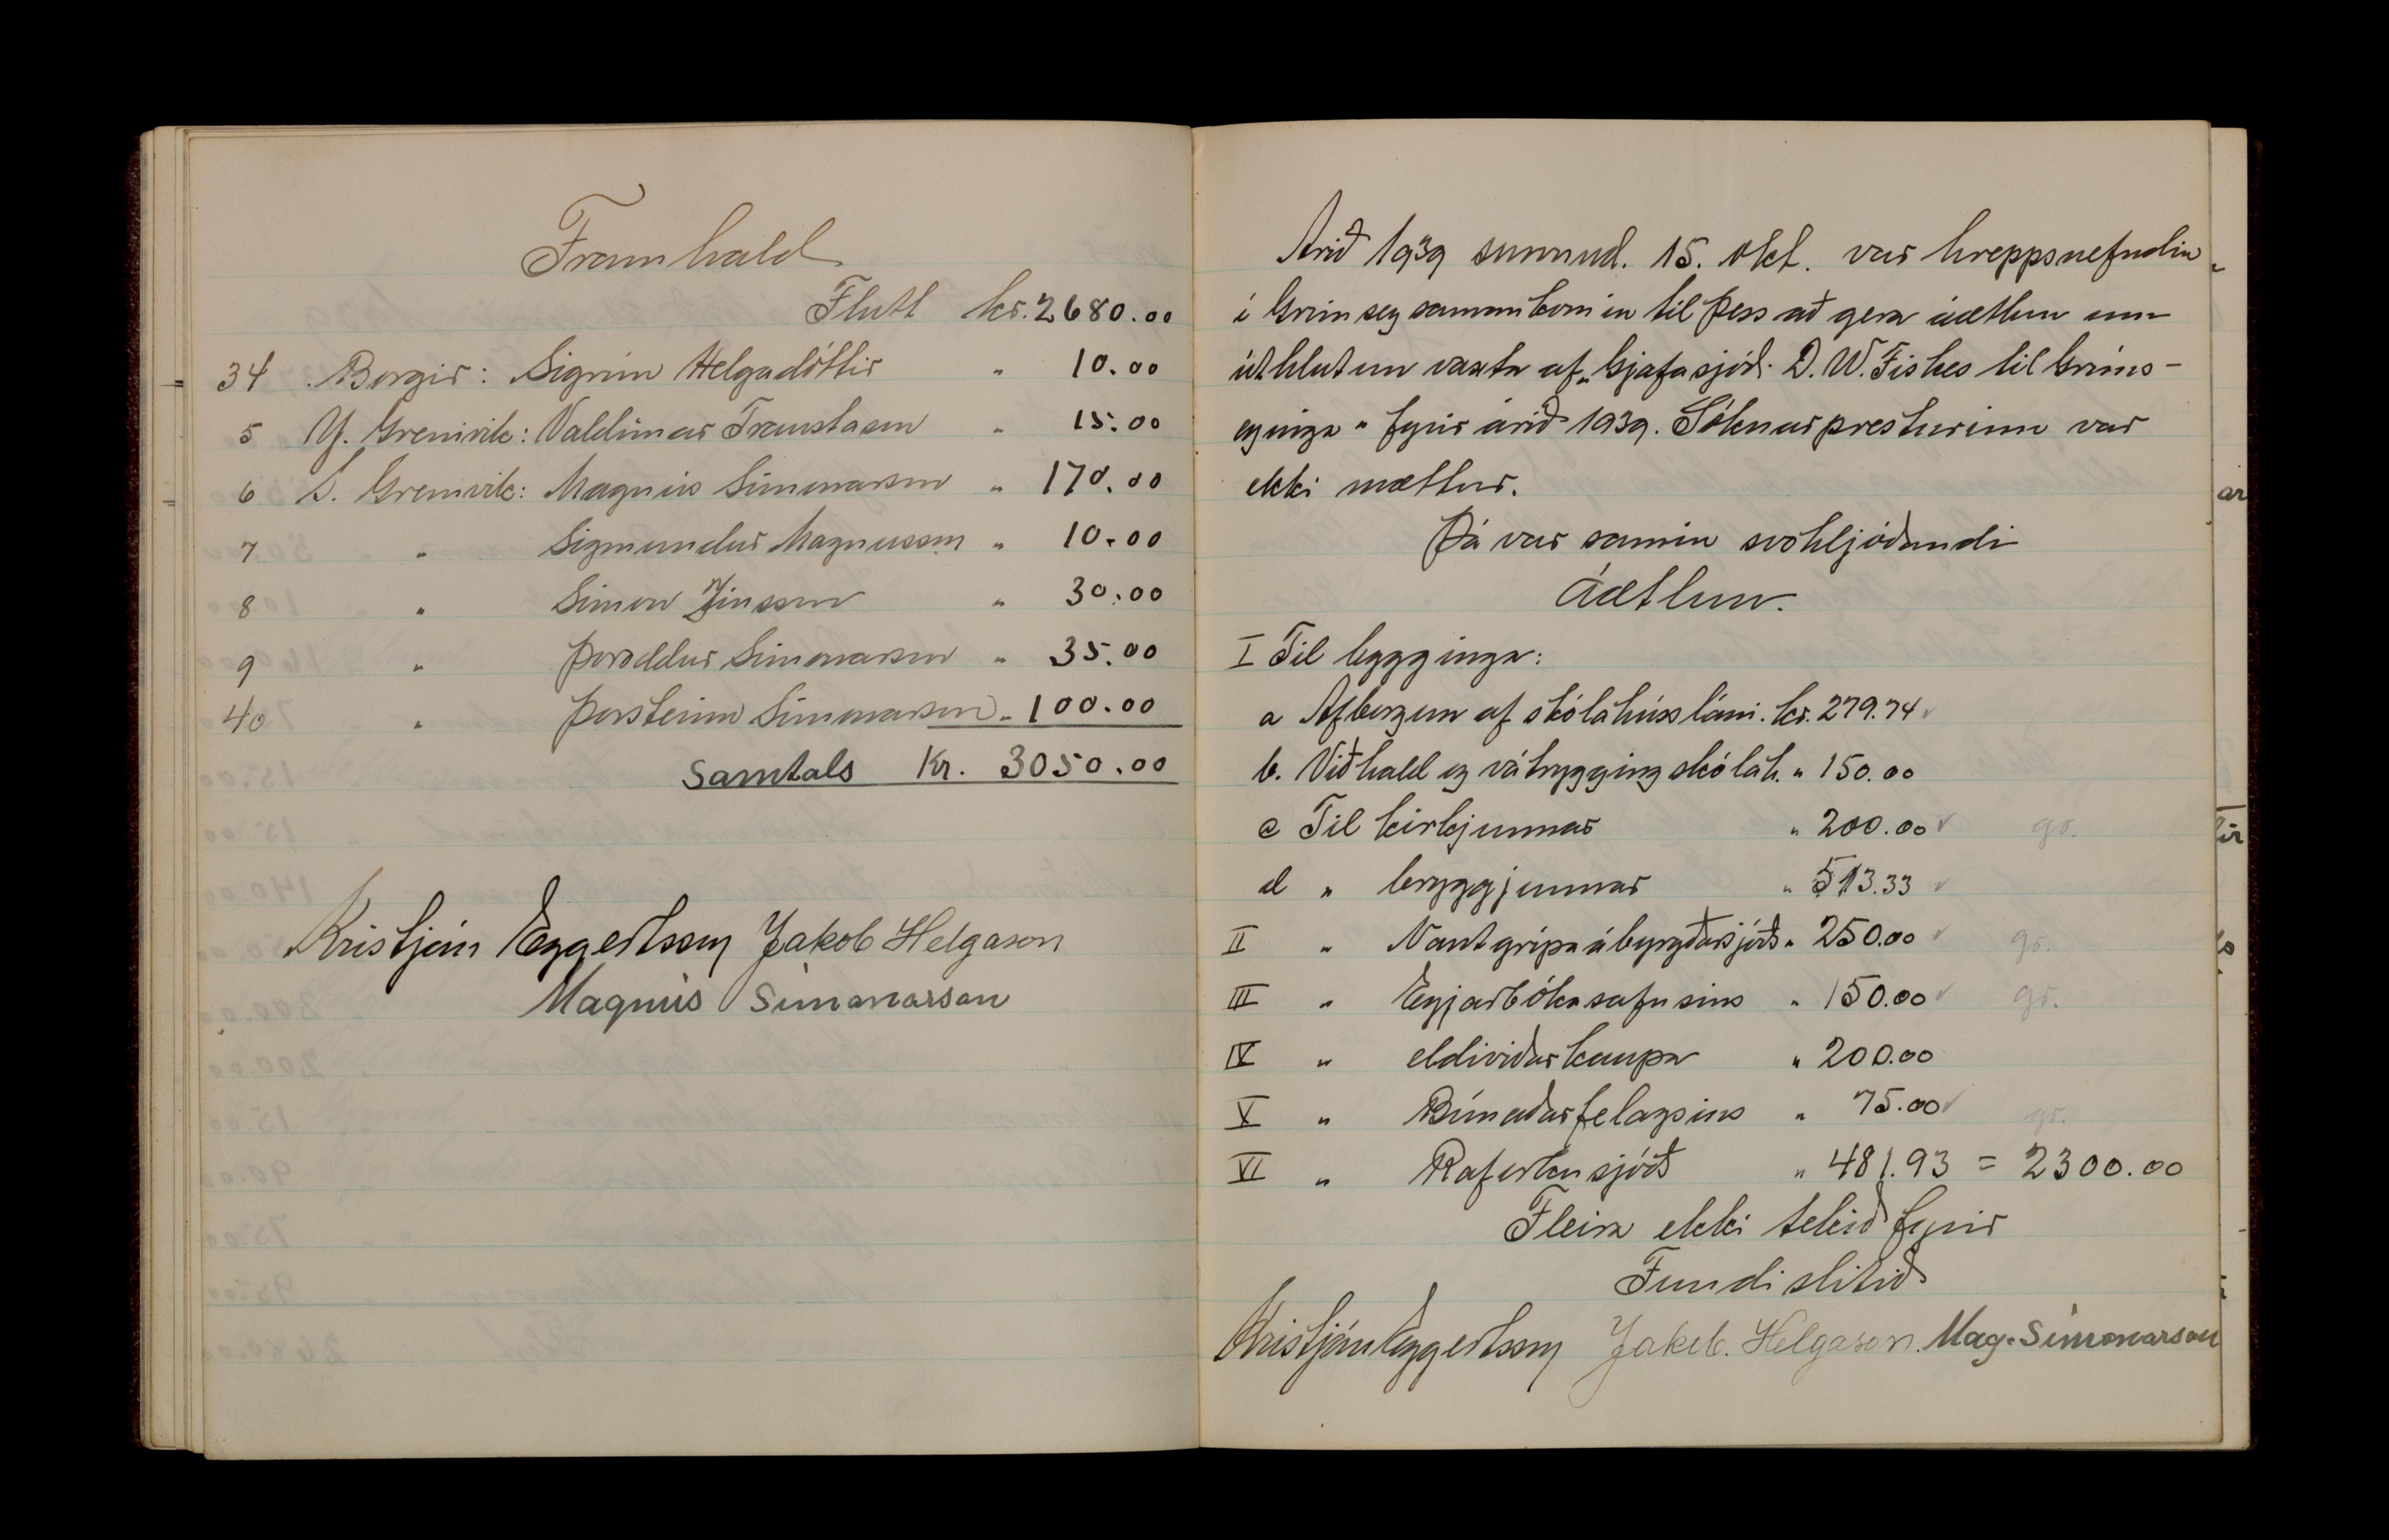 Framhald
Flutt kr. 2680.00
34 Borgir: Sigrún Helgadóttir " 10.00
5 Y. Grenivík: Valdimar Traustason " 15.00
6 S. Grenivík: Magnús Símonarson " 170.00
7 " Sigmundur Magnusson " 10.00
8 " Símon Jónsson " 30.00
9 " Þoroddur Símonarson " 35.00
40 " Þorsteinn Símonarson " 100.00
Samtals Kr. 3050.00
Kristján Eggertsson Jakob Helgason
Magnús Símonarson
Árið 1939 sunnud. 15. okt. var hreppsnefndin
í Grímsey samankomin til þess að gera áætlun um
úthlutun vaxta af „Gjafasjóð. D. W. Fiskes til Gríms-
eyinga" fyrir árið 1939. Sóknarpresturinn var
ekki mættur.
Þá var samin svohljóðandi
Áætlun.
I Til bygginga:
a Afborgun af skólahúss láni. kr. 279.74 ✓
b. Viðhald og vátrygging skólah. " 150.00
c Til kirkjunnar " 200.00 ✓ gr.
d " bryggjunnar " 513.33 ✓
II " Nautgripaábyrgðarsjóðs " 250.00 ✓ gr.
III " Eyjarbókasafnsins " 150.00 ✓ gr.
IV " eldiviðarkaupa " 200.00
V " Búnaðarfelagsins " 75.00 ✓ gr.
VI " Raforkusjóðs " 481.93 = 2300.00
Fleira ekki tekið fyrir
Fundi slitið
Kristján Eggertsson Jakob. Helgason. Mag. Símonarson